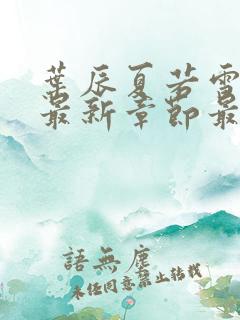 葉辰夏若雪
最新章節最
語無塵
未经同意禁止转载